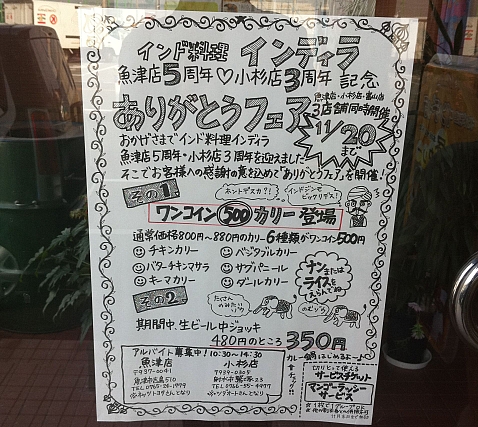 インド料理 インディラ
魚津店5周年♡小杉店3周年 記念
ありがとうフェア
魚津店・小杉店・富山店
3店舗同時開催
11/20まで
おかげさまでインド料理インディラ
魚津店5周年・小杉店3周年を迎えました
そこでお客様への感謝の意を込めて"ありがとうフェア"を開催!
その1.
ホントデスカ?!
インドジンもビックリデス!
ワンコイン 500 カリー 登場
通常価格800円~880円のカリー6種類がワンコイン500円
チキンカリー
ベジタブルカリー
バターチキンマサラ
サグパニール
キーマカリー
ダールカリー
ナンまたはライスをえらんでね
その2
たくさんのみたいゾウ
のむゾウ
期間中、生ビール中ジョッキ
480円のところ350円
アルバイト募集中!10:30~14:30
魚津店
〒937-0041
魚津市吉島510
小杉店
カレー鍋はじめるよ~♪
切りとって使える
サービスチケット
マンゴーラッシー
サービス